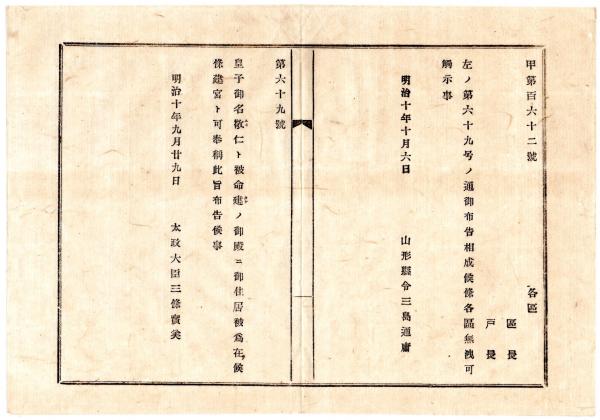 甲第百六十二號
各區
區長
戸長
左ノ第六十九号ノ通御布告相成候條各區無洩可
觸示事
明治十年十月六日
山形縣令三島通庸
第六十九號
皇子御名敬仁ト被命建ノ御殿ニ御住居被爲在候
條建宮ト可奉稱此旨布告候事
明治十年九月廿九日
太政大臣三條實美